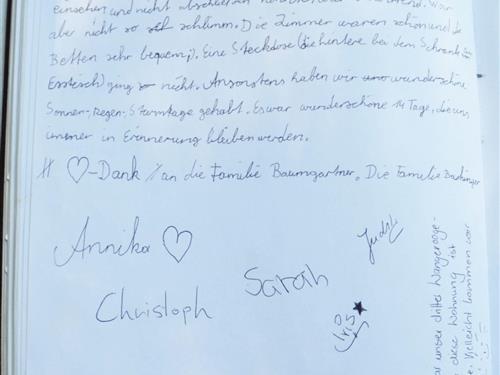 einsehen und nicht abschließen
aber nicht so schlimm. Die Zimmer waren schön und die
Betten sehr bequem;). Eine Steckdose (die hintere bei dem Schrank
Esstisch) ging so nicht. Ansonsten haben wir wunderschöne
Sonnen-, Regen-, Sturmtage gehabt. Es war wunderschöne 14 Tage, die uns
immer in Erinnerung bleiben werden.
♡-Dank an die Familie Baumgartner. Die Familie
Annika ♡
Judith
Sarah
Christoph
Iris ★
unser drittes Wangerooge-
diese Wohnung ist
Vielleicht kommen wir